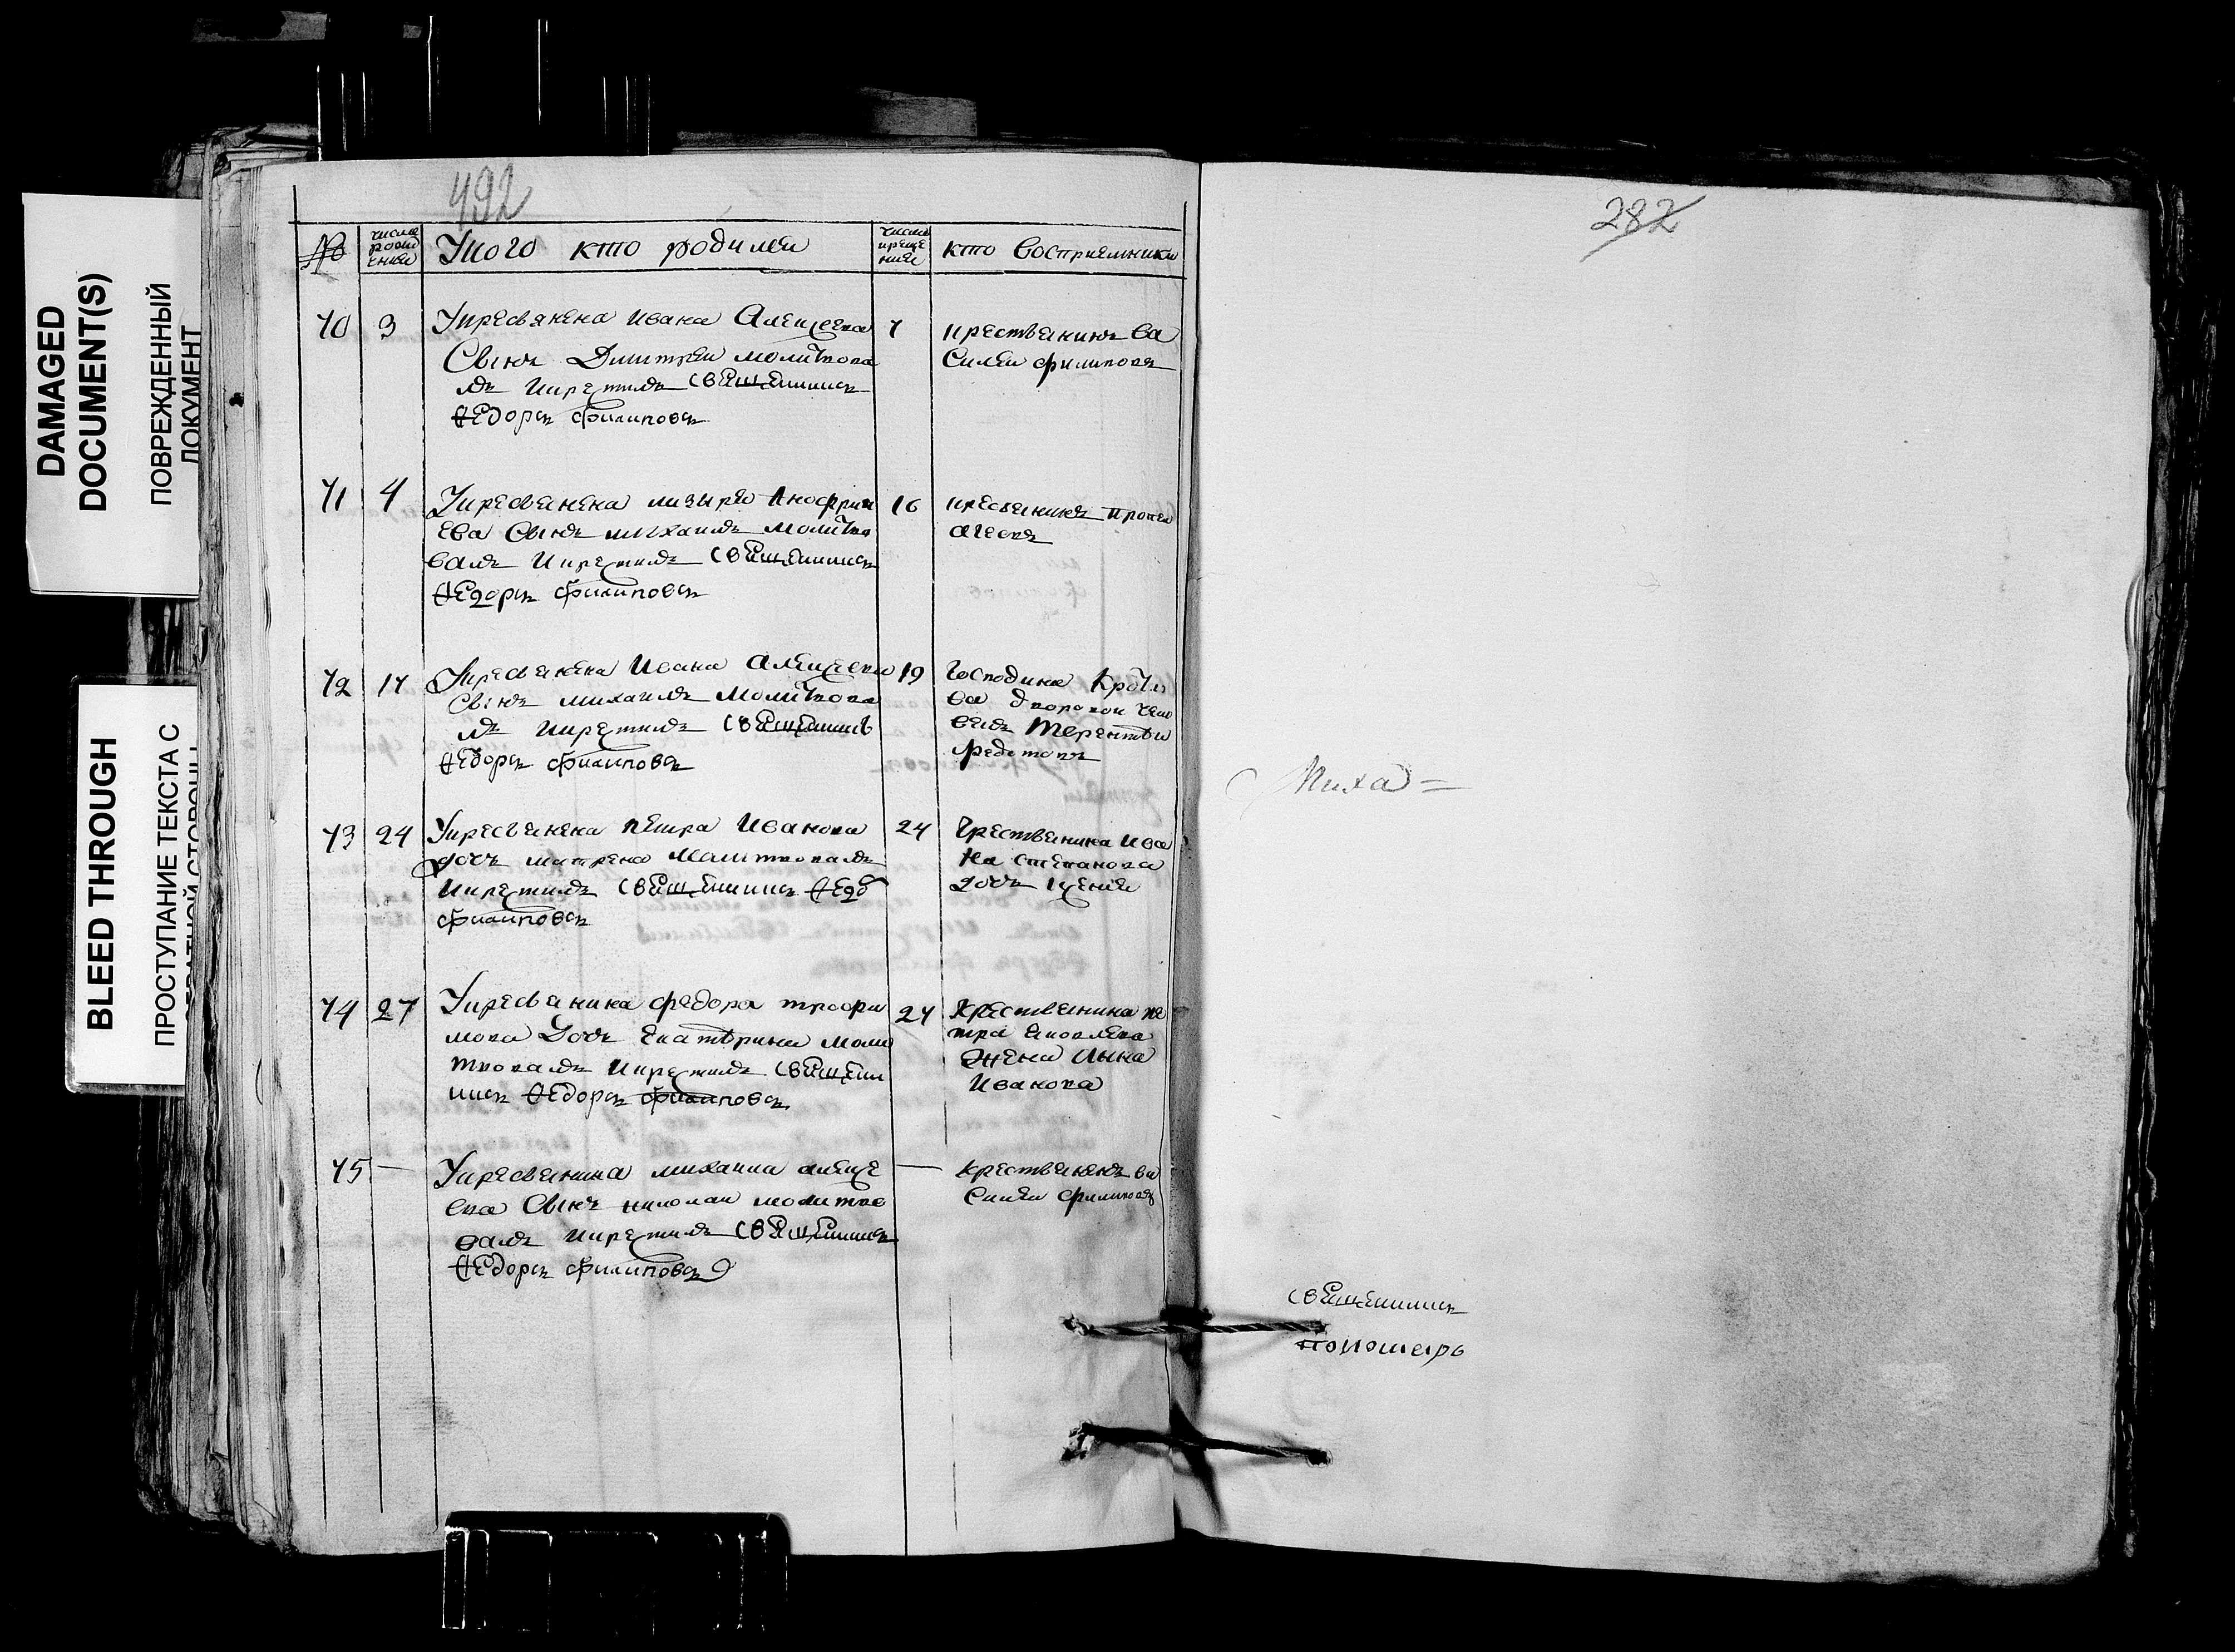 DAMAGED
DOCUMENT(S)
ПОВРЕЖДЕННЫЙ
ДОКУМЕНТ
BLEED THROUGH
ПРОСТУПАНИЕ ТЕКСТА С
492
№
число рожденія
Укого кто родился
число крещенія
кто восприемники
70 3 Укресьянена Ивана Алексеева
Сынъ Дмитреи молитвова
лъ икрестилъ свещенникъ
Федоръ Филиповъ
7
крестьенинъ Ва
силеи филиповъ
71 4 Укресьенена лазыря Анофрии
ева Сынъ михаилъ молитво
валъ икрестилъ свещенникъ
Федоръ Филиповъ
16
кресьенинъ
72 17 Укресьенена Ивана Алексеева
Сынъ михаилъ молитвова
лъ икрестилъ свещенникъ
Федоръ Филиповъ
19
Господина
ва дворовои чело
векъ Терентеи
73 24 Укресьенена петра Иванова
дочь матрена молитвовалъ
икрестилъ свещенникъ Федо
Филиповъ
24
Крестьенина Ива
на степанова
дочь
74 27 Укресьенина федора трофи
мова Дочь Екатерина моли
твовалъ икрестилъ свещен
никъ Федоръ Филиповъ
27
Крестьенина пе
тра Яковлева
жена Анна
Иванова
75 — Укресьенина михаила алексе
ева Сынъ николаи молитво
валъ икрестилъ свещенникъ
Федоръ Филиповъ
—
крестьененъ ва
силеи филиповъ
282
Миха=
свещенникъ
пономарь